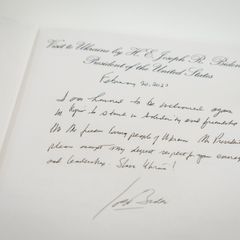 Visit to Ukraine by H.E. Joseph R. Biden
President of the United States
February 20, 2023
I am honored to be welcomed again
in Kyiv to stand in solidarity and friendship
with the freedom loving people of Ukraine. Mr. President
please accept my deepest respect for your courage
and leadership. Slava Ukraini!
Joe Biden